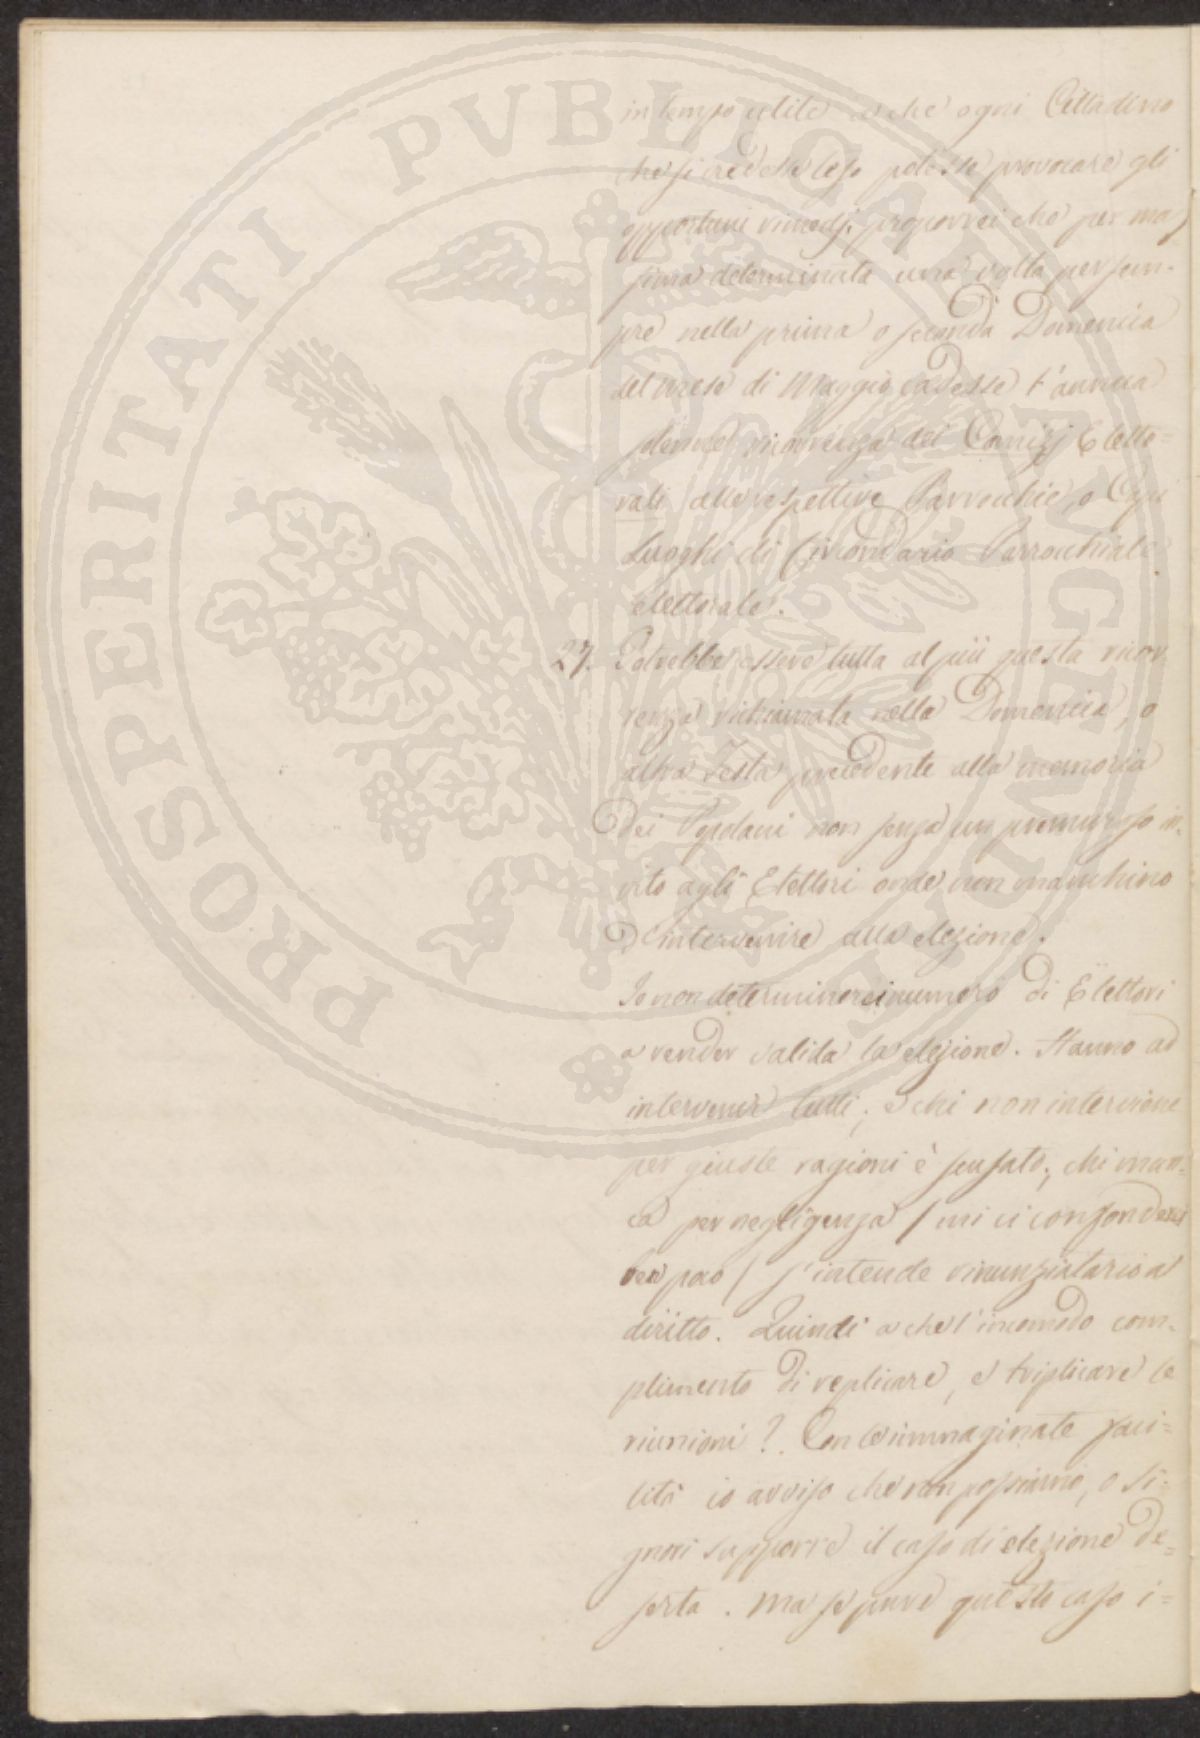 in tempo utile a che ogni Cittadino
che si credesse leso potesse provocare gli
opportuni rimedj. proporrei che per mas
sima determinata una volta per sem-
pre nella prima o seconda Domenica
del mese di Maggio cadesse l'annua
solenne ricorrenza dei Comizj Eletto=
rali alle respettive Parrocchie, o Capi
Luoghi di Circondario Parrocchiale
elettorale.
27. Potrebbe essere tutta al più questa ricor
renza richiamata nella Domenica, o
altra Festa precedente alla memoria
Dei Popolani non senza un premuroso in-
vito agli Elettori onde non manchino
D'intervenire alla elezione.
Io non determinerei numero di Elettori
a render valida la elezione. Hanno ad
intervenir tutti, e chi non interviene
per giuste ragioni è scusato, chi man-
ca per negligenza / mi ci confonderei
ben poco / s'intende rinunziatario a
diritto. Quindi a che l'incomodo com-
plimento di replicare, e triplicare le
riunioni? Con le immaginate faci=
lità io avviso che non possiamo, o Si=
gnori supporre il caso di elezione De=
serta. Ma se pure questo caso i=
PROSPERITATI PVBLICAE AVGENDAE